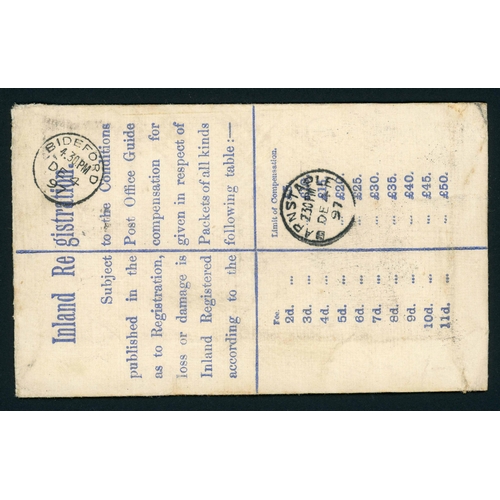 Inland Registration
Subject to the Conditions
published in the Post Office Guide
as to Registration, compensation for
loss or damage is given in respect of
Inland Registered Packets of all kinds
according to the following table:—
Fee. Limit of Compensation.
2d. ...
3d. ...
4d. ... £15.
5d. ... £20.
6d. ... £25.
7d. ... £30.
8d. ... £35.
9d. ... £40.
10d. ... £45.
11d. ... £50.
BIDEFORD
4.30PM
BARNSTAPLE
7.30PM
DE 4
97